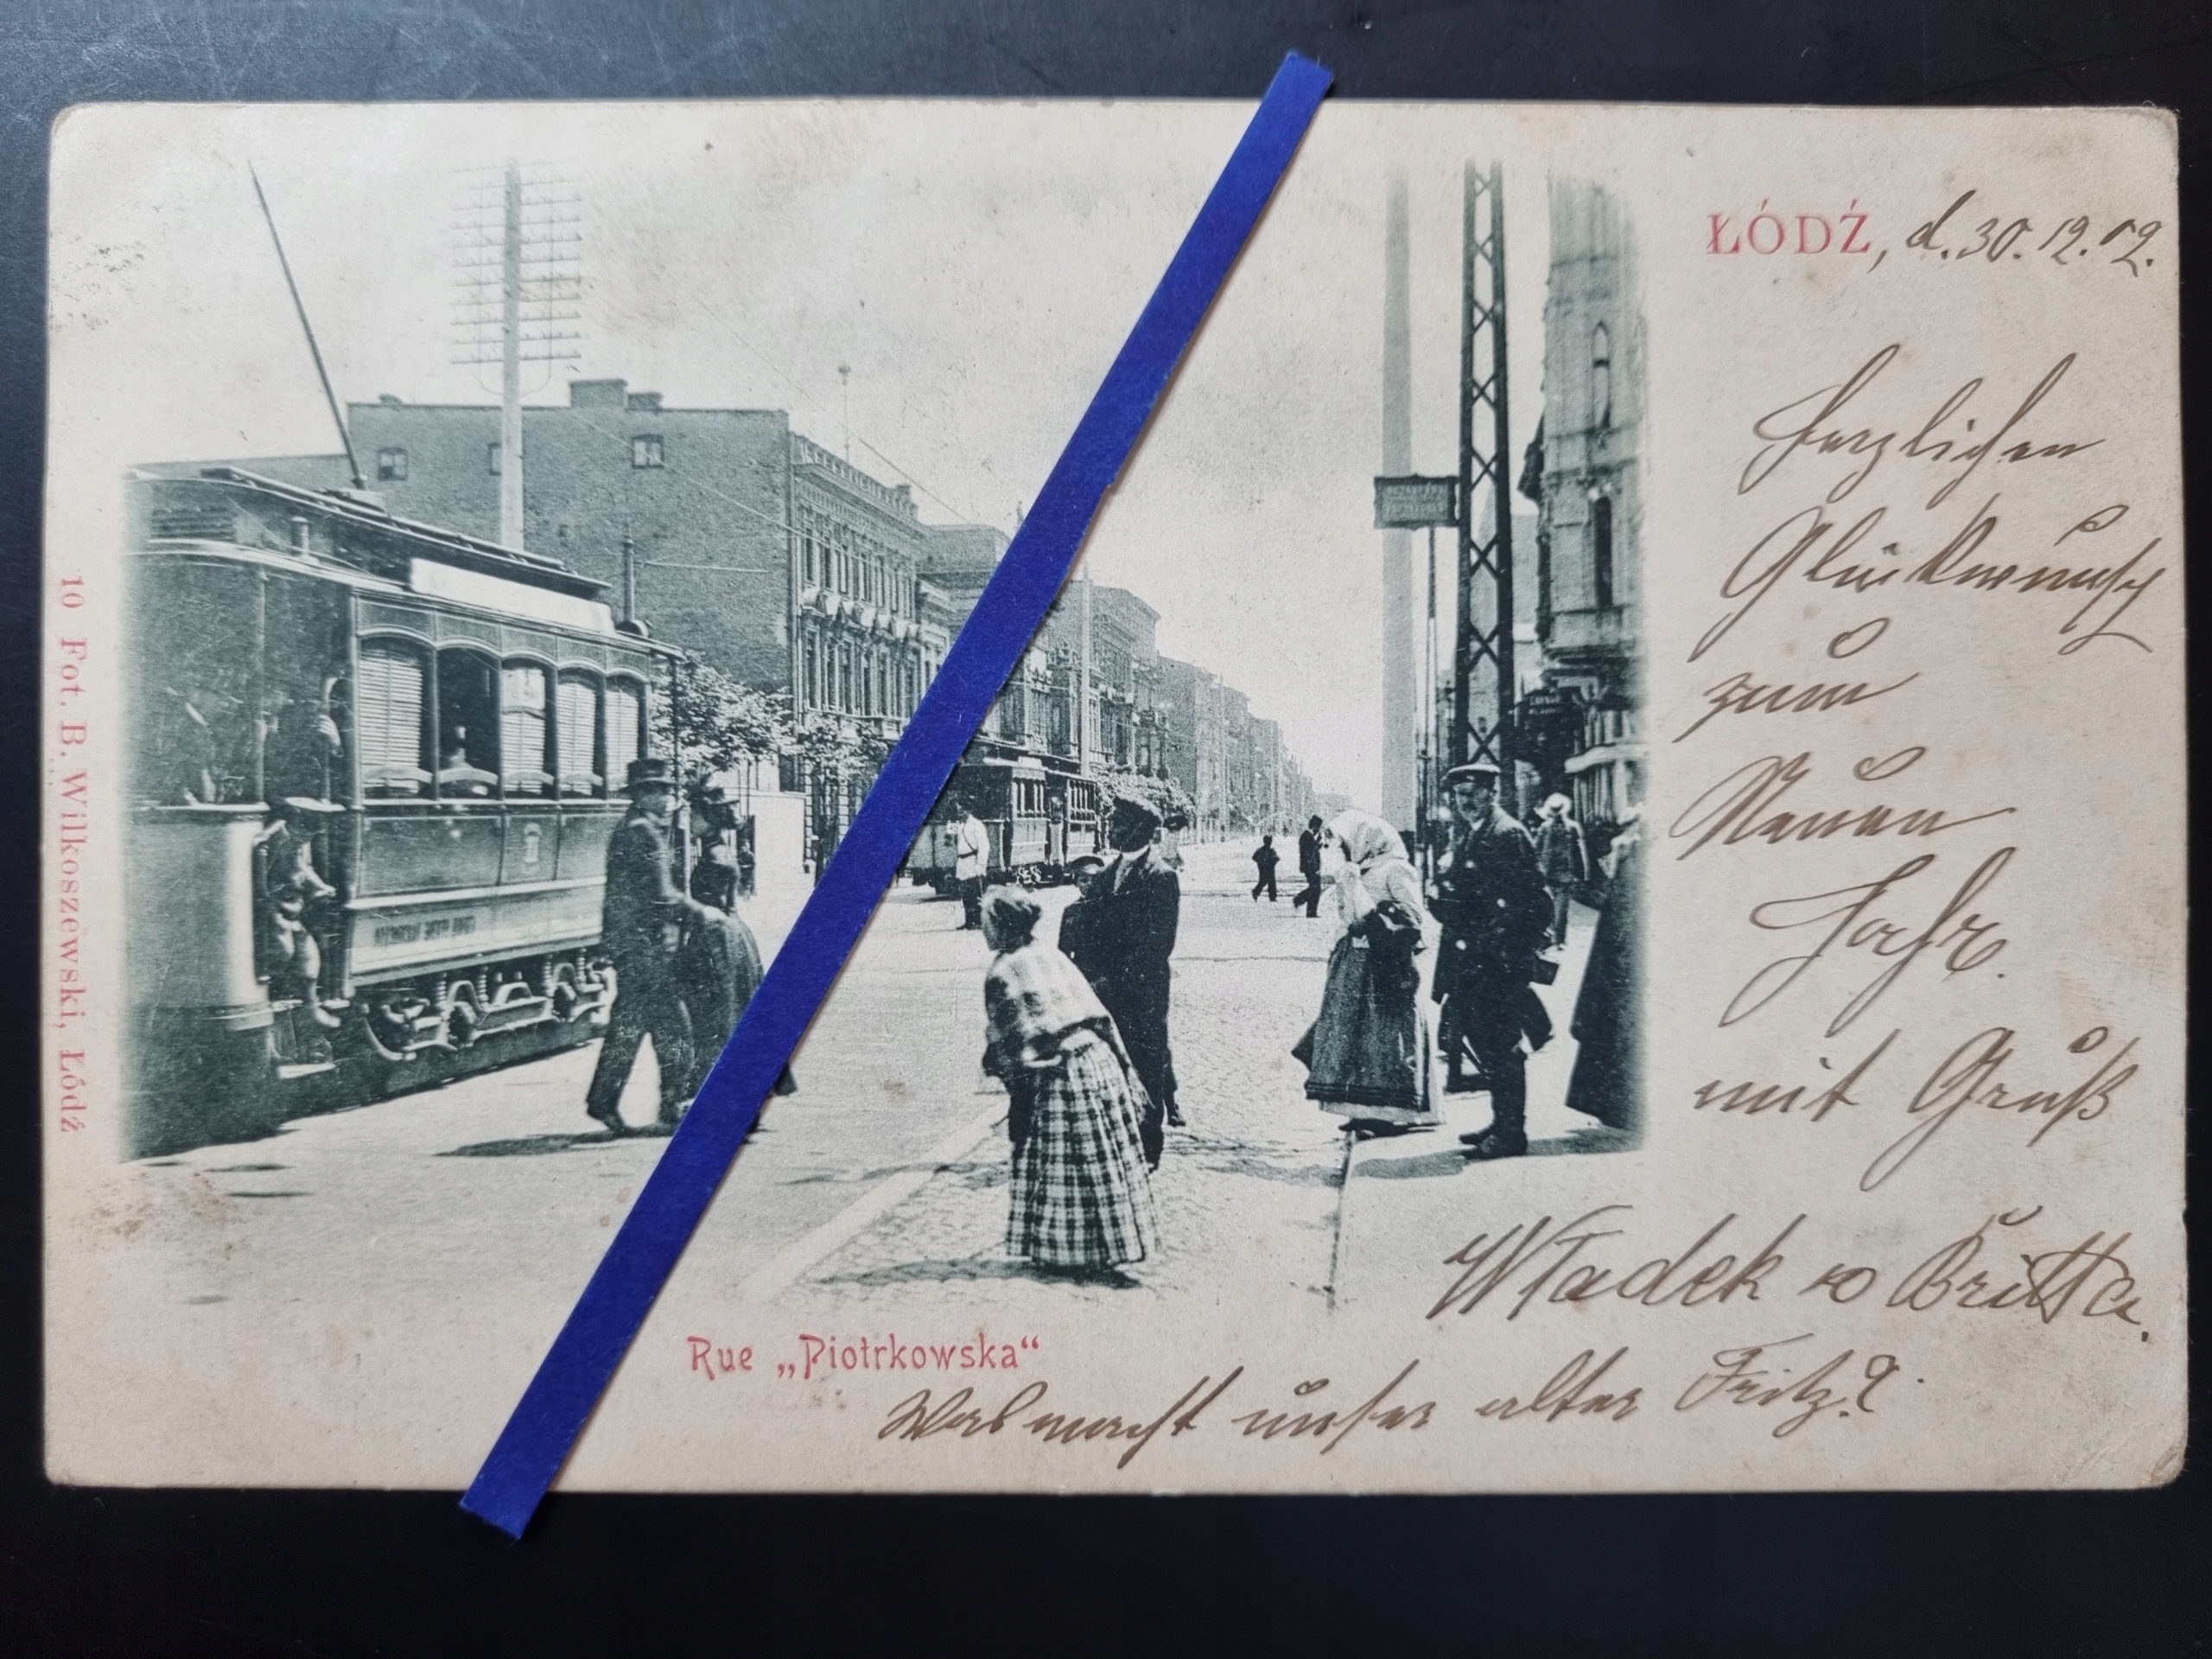 ŁÓDŹ, d. 30. 12. 02.
Herzlichen
Glückwunsch
zum
Neuen
Jahr.
mit Gruß
Władek
Was macht unser alter Fritz?
Rue „Piotrkowska“
10 Fot. B. Wilkoszewski, Łódź